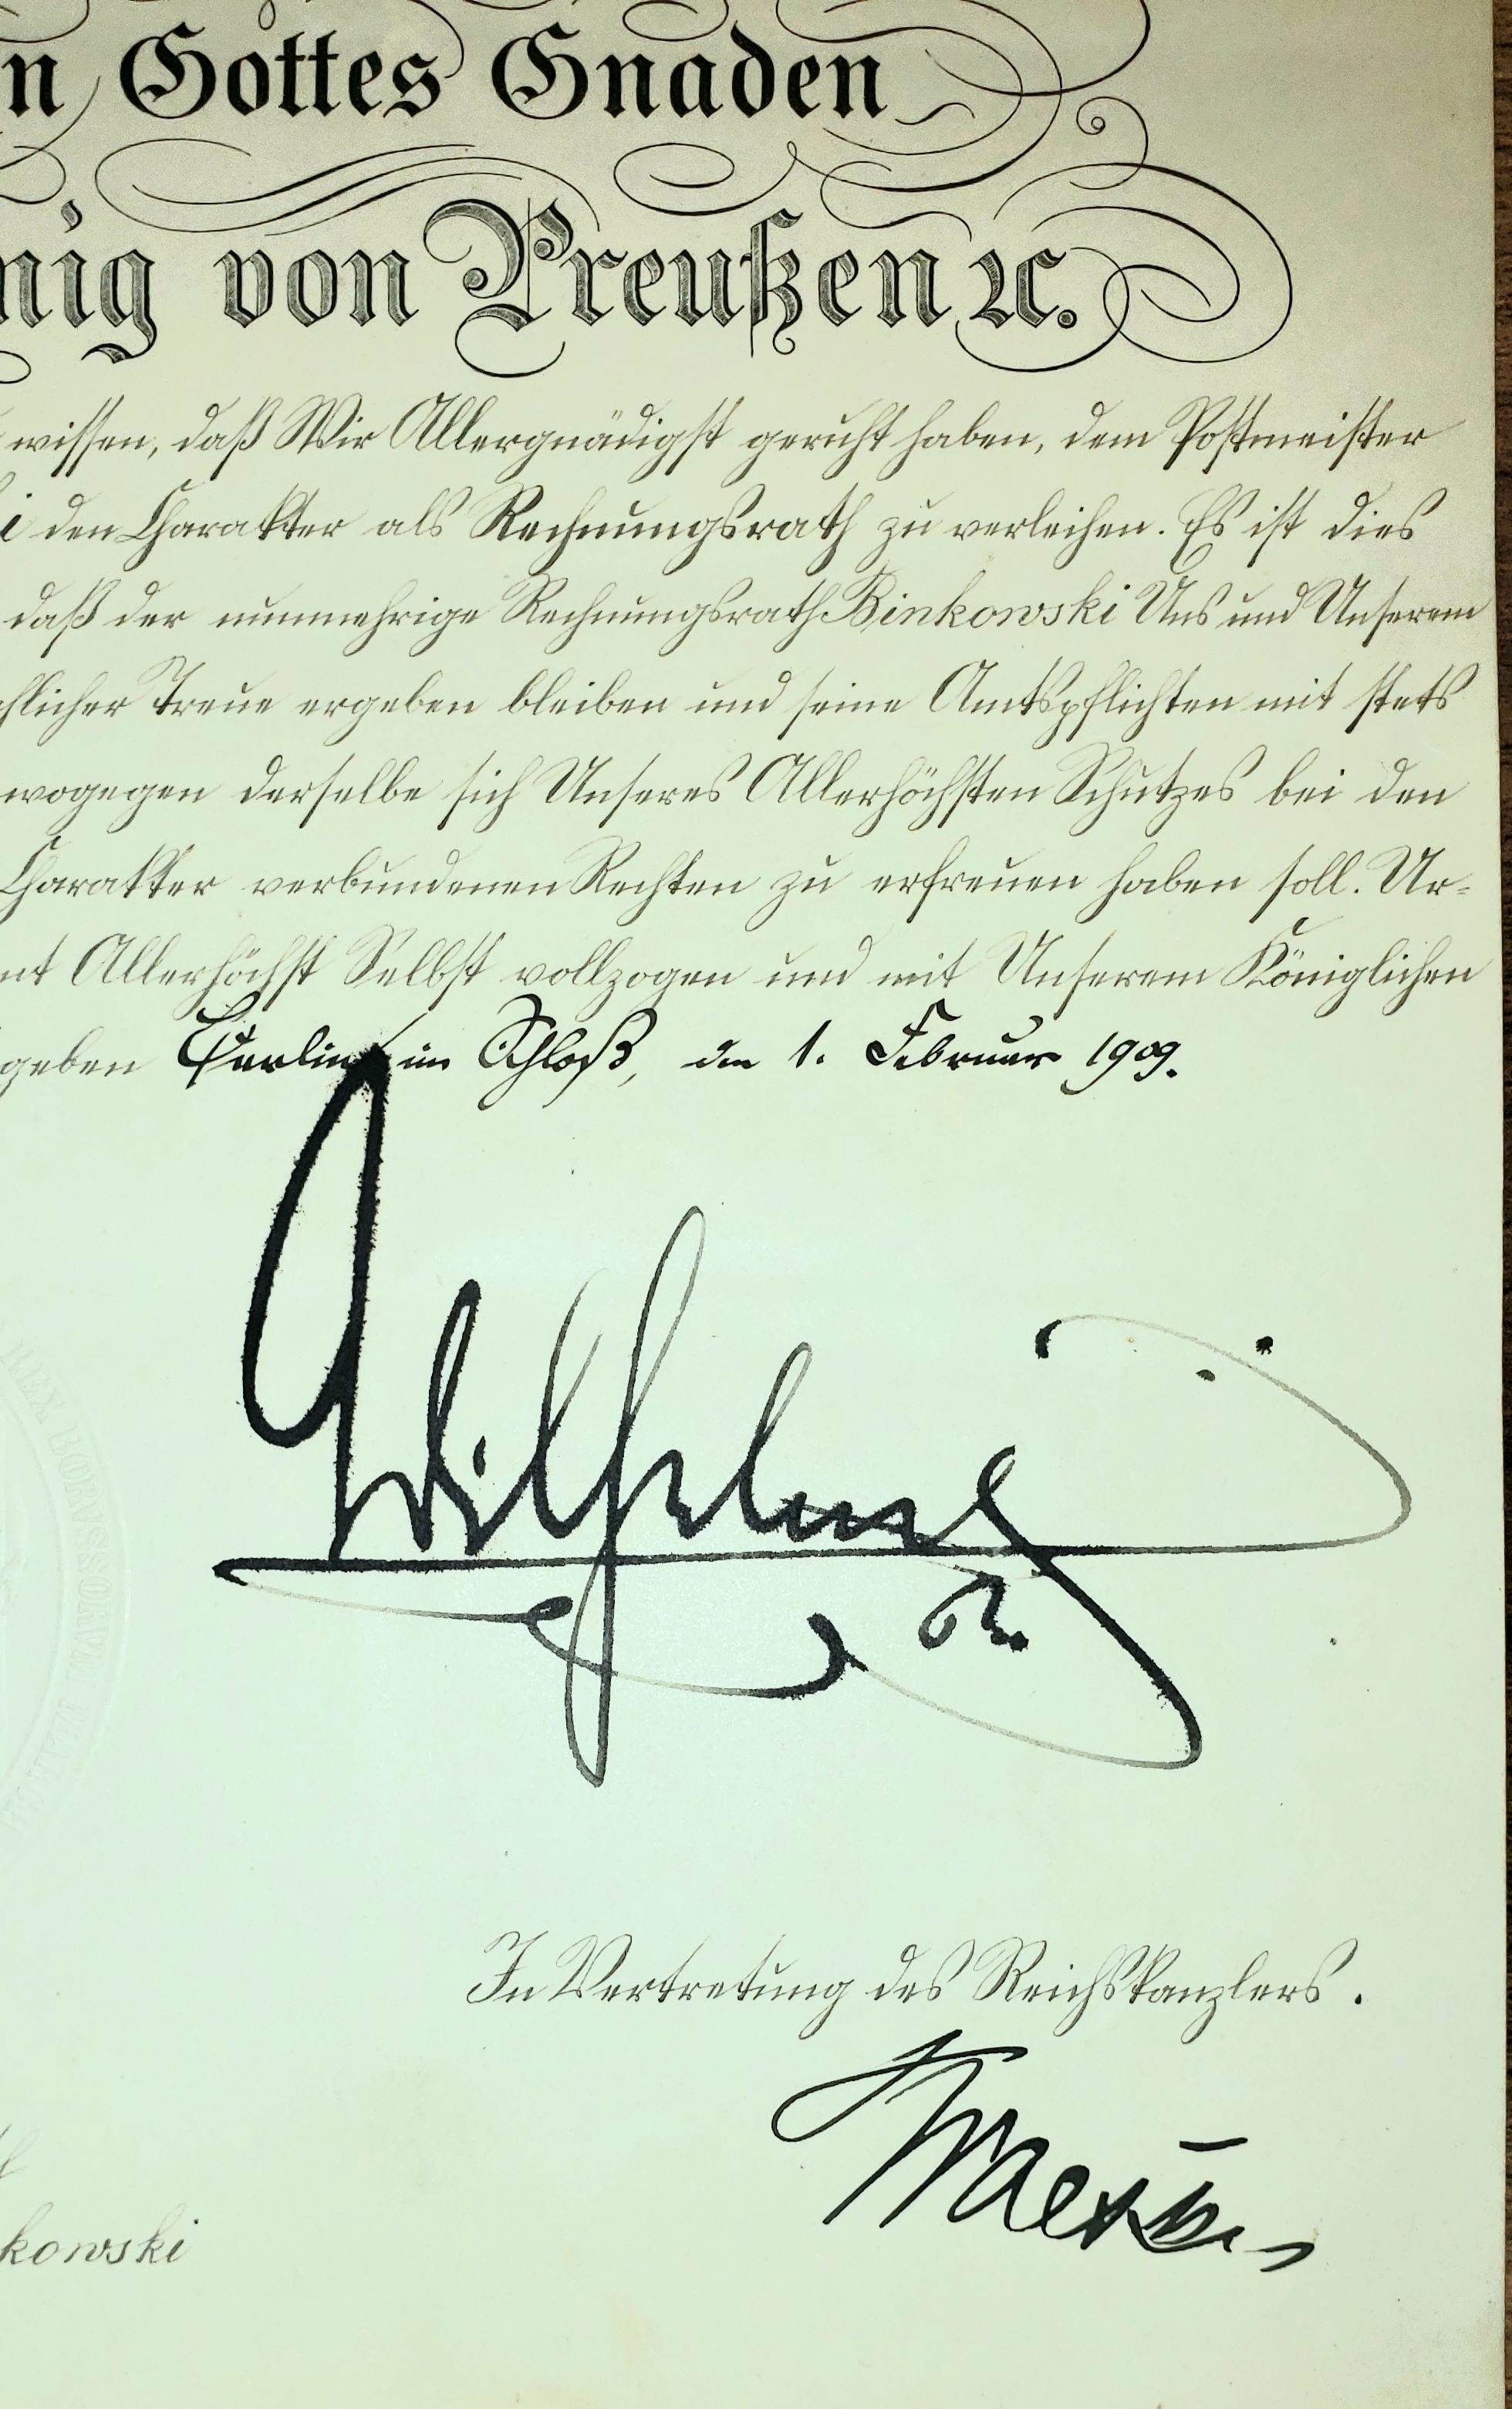 n Gottes Gnaden
nig von Preußen ꝛc.
wissen, daß Wir Allergnädigst geruht haben, dem Postmeister
i den Charakter als Rechnungsrath zu verleihen. Es ist dies
daß der nunmehrige Rechnungsrath Binkowski Uns und Unserem
chlicher Treue ergeben bleiben und seine Amtspflichten mit stets
wogegen derselbe sich Unseres Allerhöchsten Schutzes bei den
Charakter verbundenen Rechten zu erfreuen haben soll. Ur-
nt Allerhöchst Selbst vollzogen und mit Unserem Königlichen
geben Berlin im Schloß, den 1. Februar 1909.
Wilhelm
In Vertretung des Reichskanzlers.
Kraetke
kowski